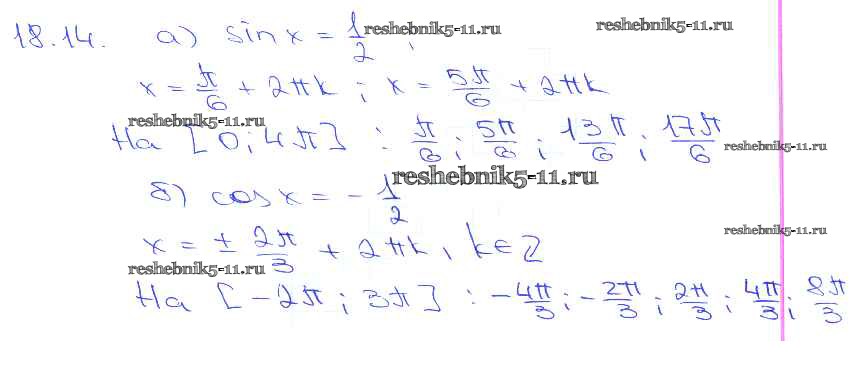 18.14. а) sin x = 1/2 ;
reshebnik5-11.ru
reshebnik5-11.ru
x = π/6 + 2πk ; x = 5π/6 + 2πk
reshebnik5-11.ru
На [0; 4π] : π/6 ; 5π/6 ; 13π/6 ; 17π/6
reshebnik5-11.ru
reshebnik5-11.ru
б) cos x = - 1/2
reshebnik5-11.ru
x = ± 2π/3 + 2πk, k∈Z
reshebnik5-11.ru
На [-2π ; 3π] : -4π/3 ; -2π/3 ; 2π/3 ; 4π/3 ; 8π/3